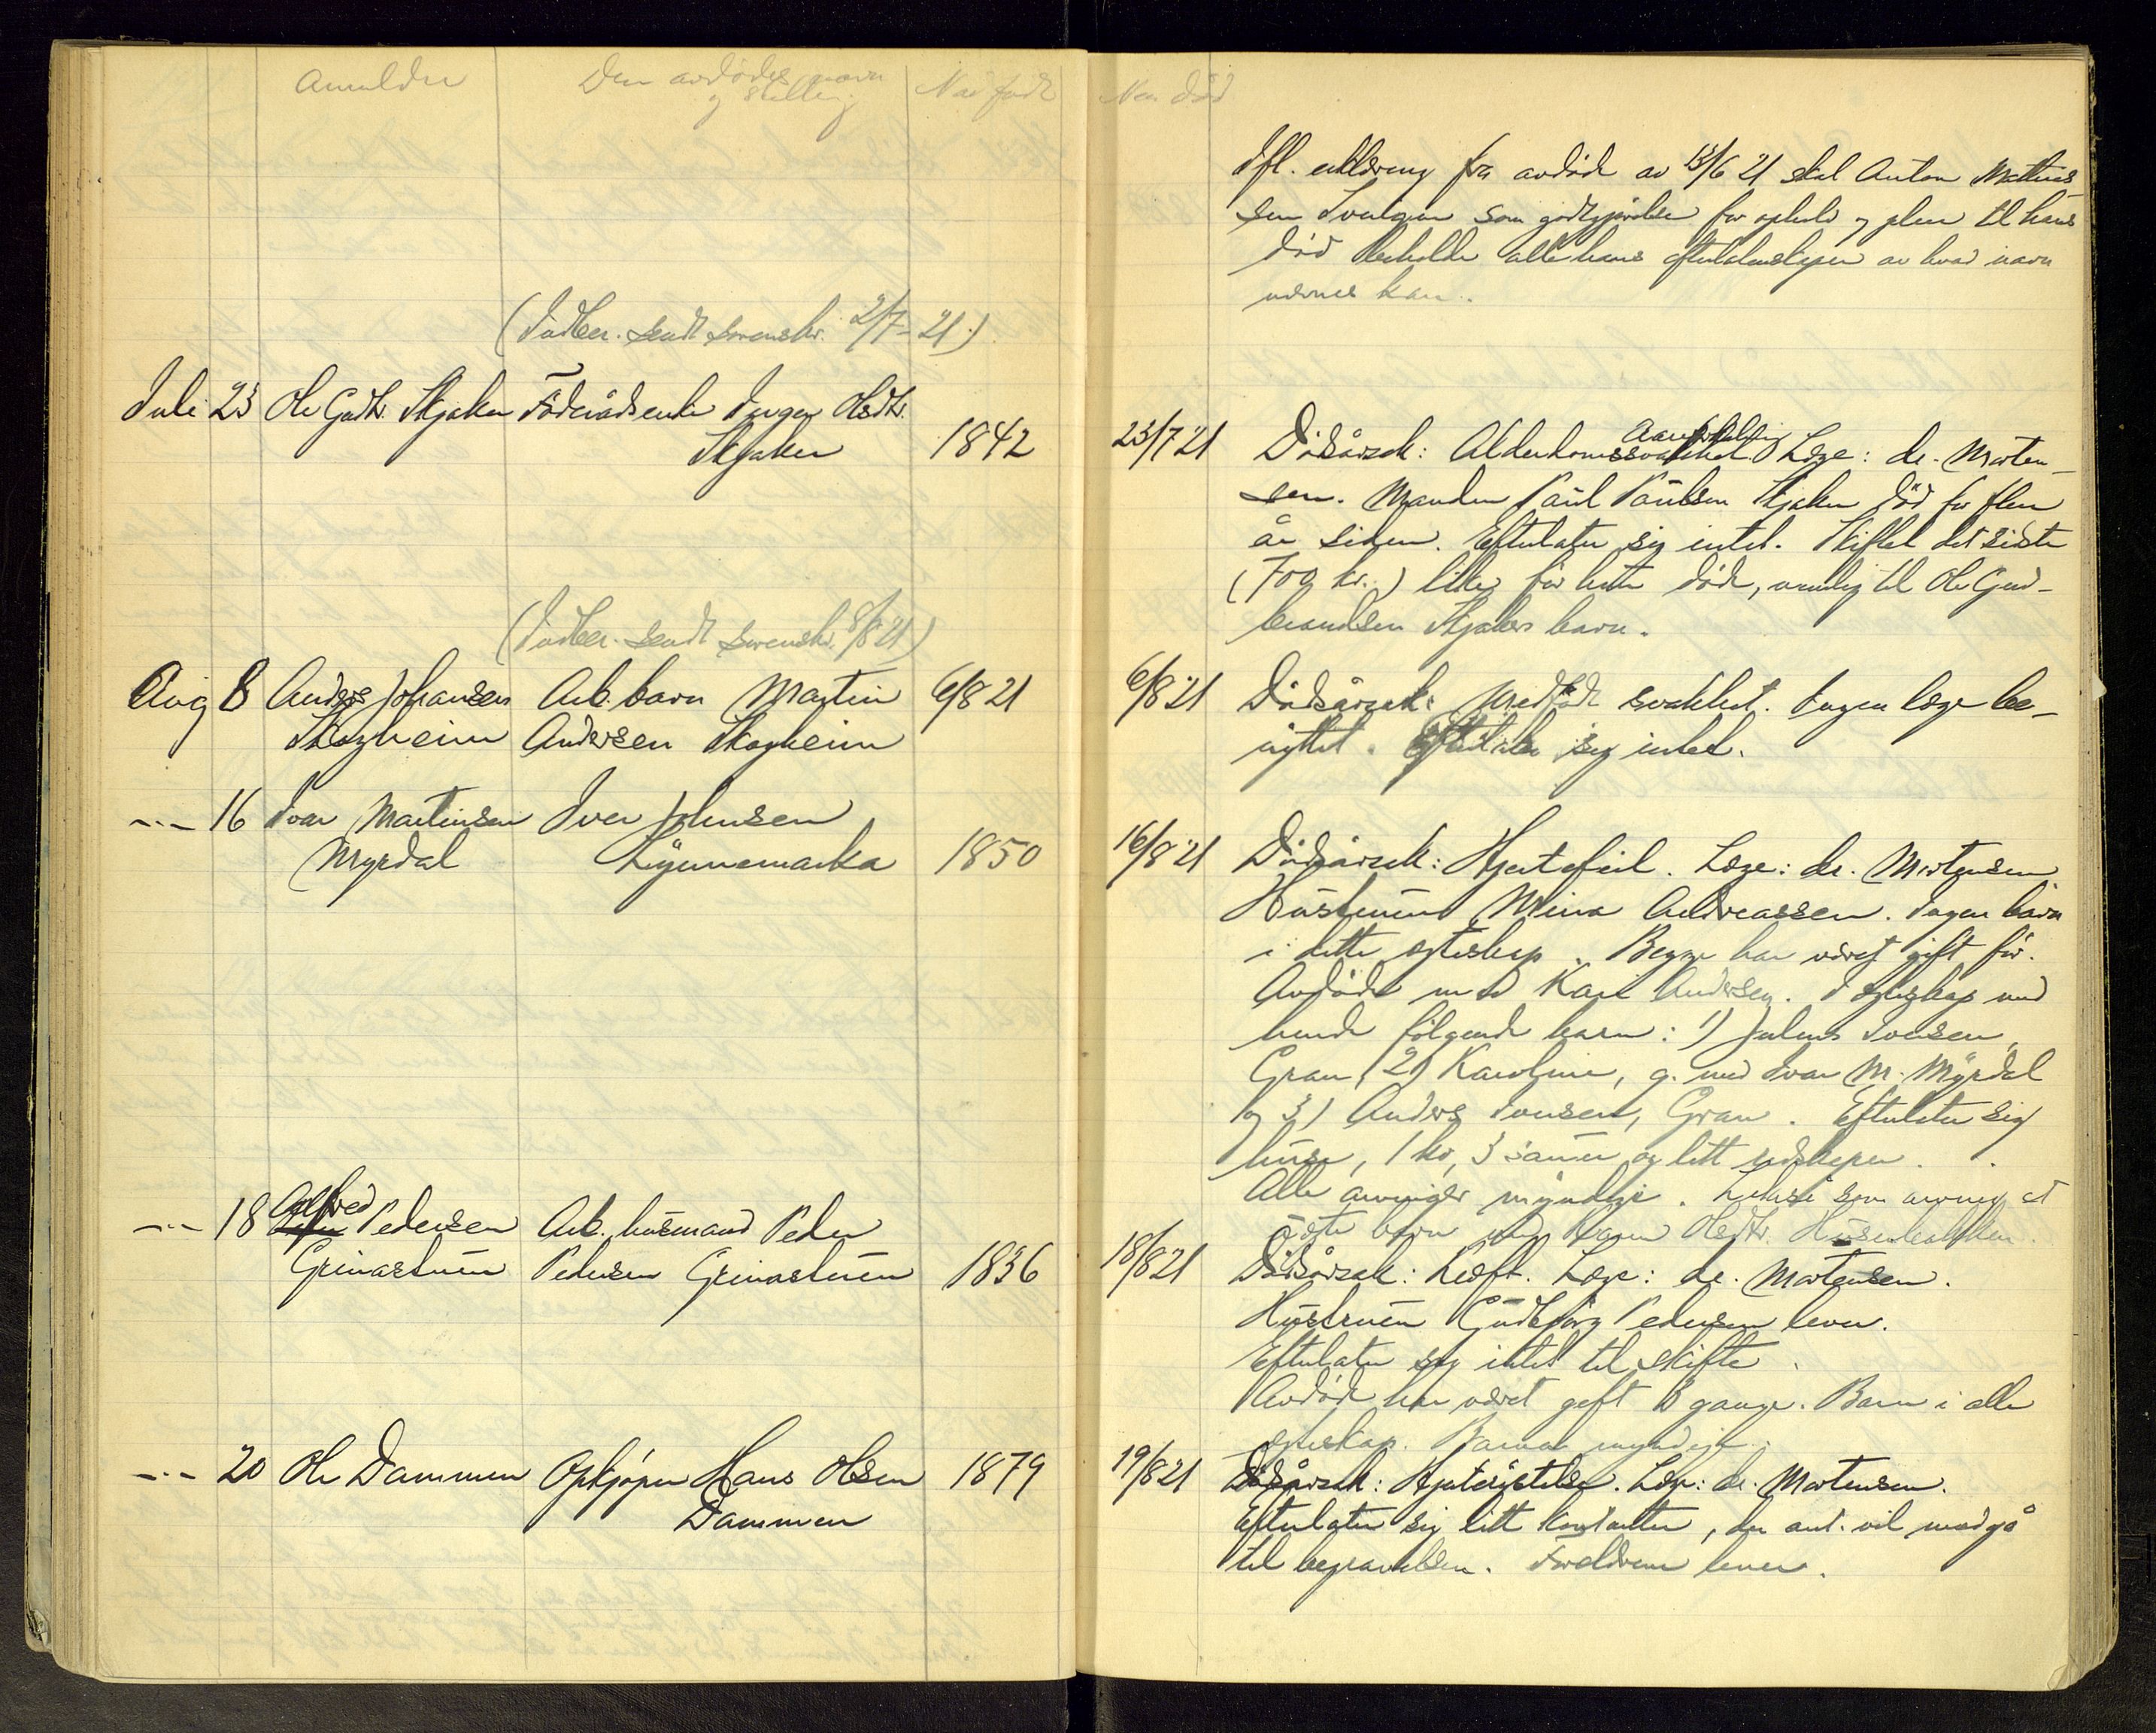 Anmelder
Den avdødes navn
og stilling
Når født
Når død
Ifl. erklæring fra avdøde av 13/6 21 skal Anton Mathis
sen som godtgjørelse for ophold og pleie til hans
død beholde alle hans efterladenskaper av hvad navn
nævnes kan.
(Indber. sendt sorenskr. 2/7-21)
Juli 23 Ole Gudbr. Skjaker Föderådsenke Inger Olsdtr.
Skjaker 1842
23/7 21 Dödsårsak: Alderdomssvakhet Læge: dr. Morten-
sen. Manden Paul Paulsen Skjaker död for flere
år siden. Efterlater sig intet. Skiftet det sidste
(700 kr.) like før hun døde, nemlig til Ole Gud-
brandsen Skjakers barn.
(Indber. sendt sorenskr. 8/8 21)
Aug 8 Anders Johansen Arb. barn Martin 6/8 21
Skogheim Andersen Skogheim
6/8 21 Dödsårsak: Medfödt svakhet. Ingen læge be-
nyttet. Efterlater sig intet.
-"- 16 Ivar Martinsen Iver Johnsen
Myrdal Lynnemarka 1850
16/8 21 Dödsårsak: Hjertefeil. Læge: dr. Mortensen
Hustruen Mina Andreassen. Ingen barn
i dette egteskap. Begge har været gift før.
Avdöde med Kari Andersen. I egteskap med
hende følgende barn: 1) Julius Iversen,
Gran, 2) Karoline, g. med Ivar M. Myrdal
og 3) Anders Iversen, Gran. Efterlater sig
huse, 1 ko, 3 sauer og litt redskaper.
Alle arvinger myndige.
barn Karen Olsdtr.
-"- 18 Alfred Pedersen Arb. husmand Peder
Grinastuen Pedersen Grinastuen 1836
18/8 21 Dödsårsak: Kræft. Læge: dr. Mortensen.
Hustruen Gudbjørg Pedersen lever.
Efterlater sig intet til skifte.
Avdöde har været gift 3 gange. Barn i alle
egteskap. Barna myndige.
-"- 20 Ole Dammen Opkjøper Hans Olsen 1879
Dammen
19/8 21 Dödsårsak: Hjerterystelse. Læge: dr. Mortensen.
Efterlater sig litt kontanter, der ant. vil medgå
til begravelsen. Forældrene lever.